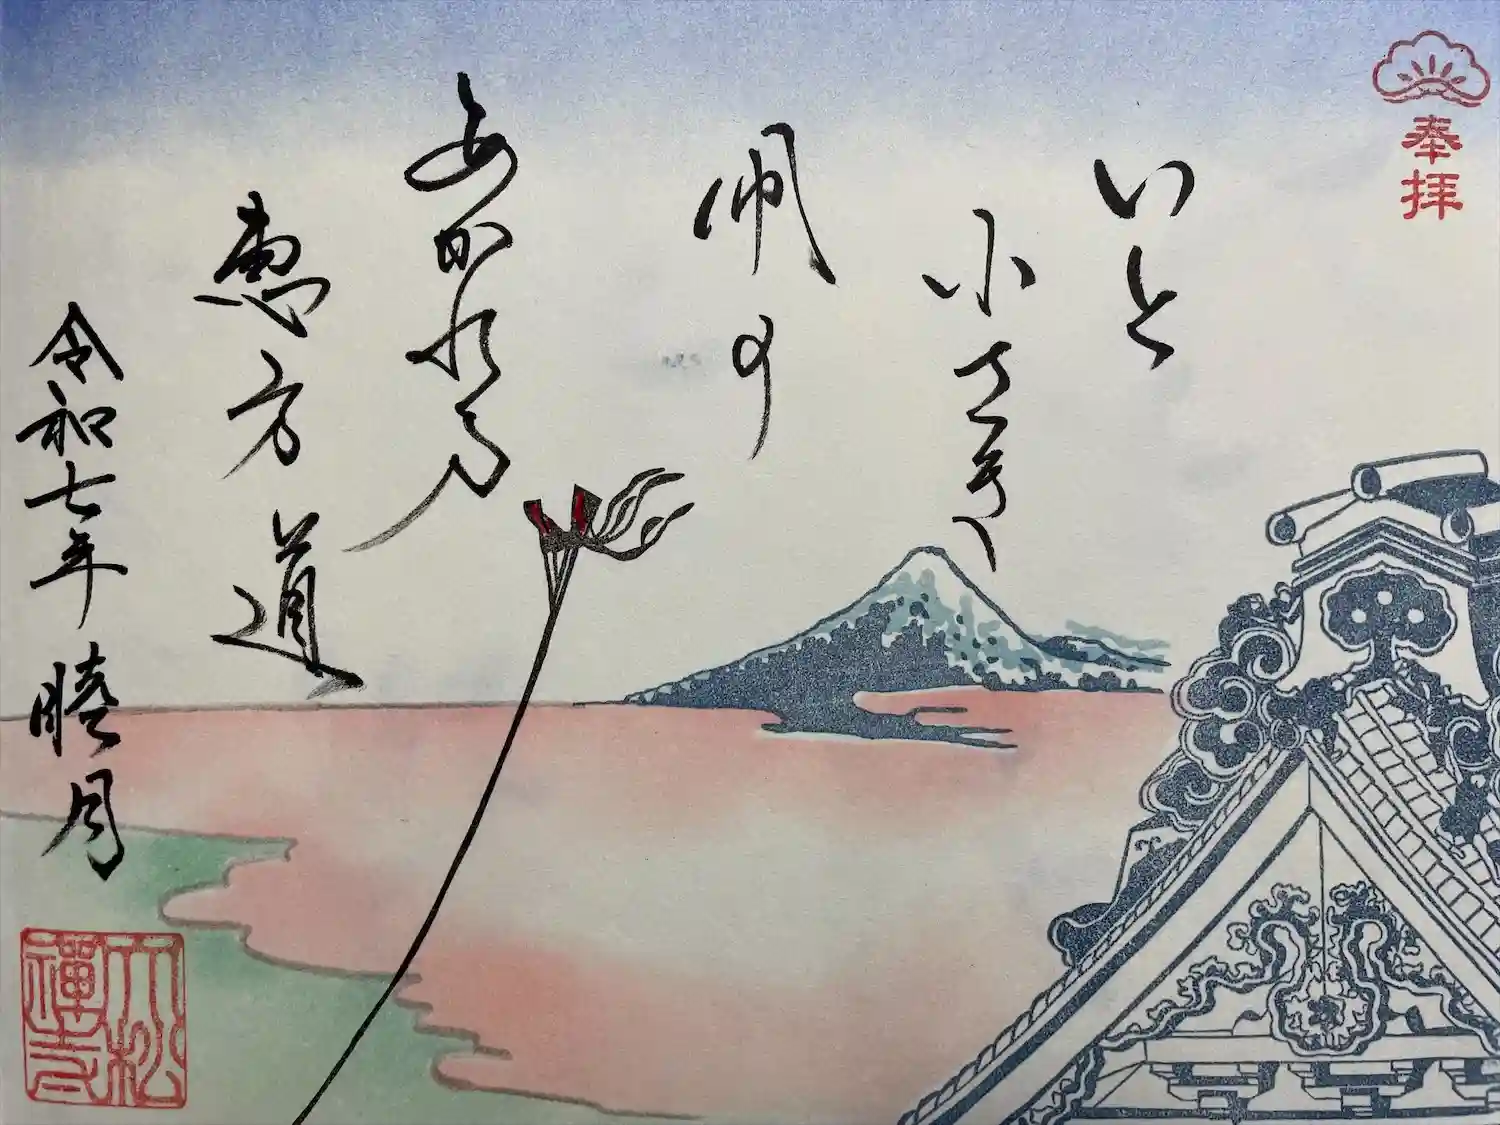 奉拝
いと
小さき
凧の
あかれる
恵方道
令和七年 睦月
大松
禪寺